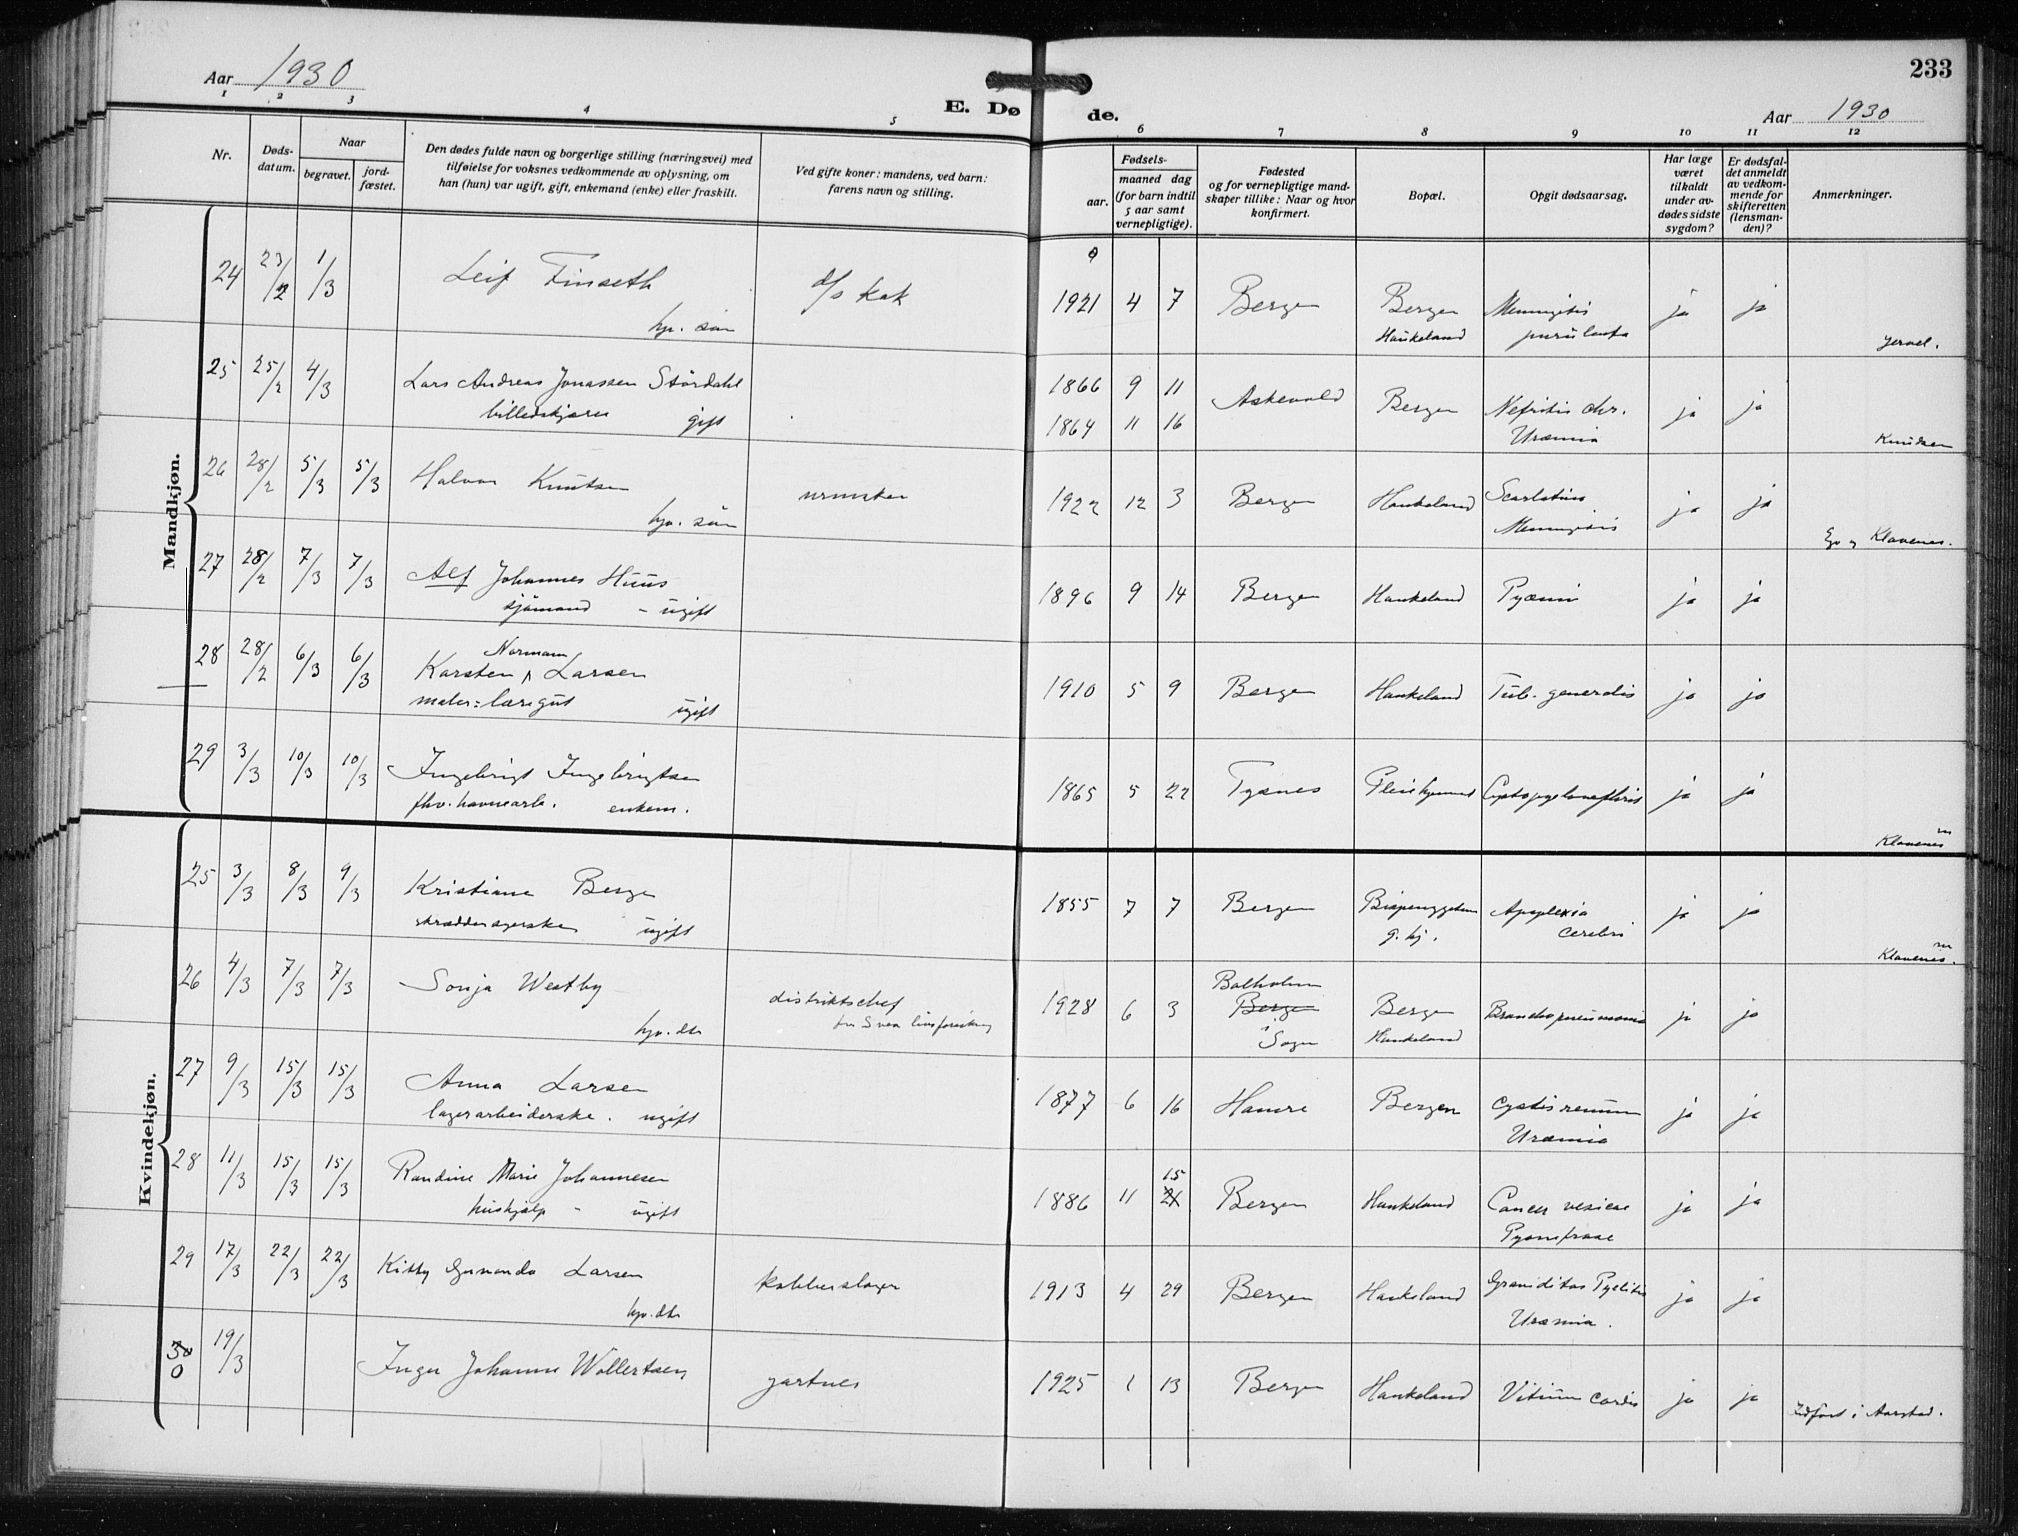 Aar 1930
E. Dø
de.
233
Aar 1930
1 2 3 4 5 6 7 8 9 10 11 12
Nr.
Døds-
datum.
Naar
begravet.
jord-
fæstet.
Den dødes fulde navn og borgerlige stilling (næringsvei) med
tilføielse for voksnes vedkommende av oplysning, om
han (hun) var ugift, gift, enkemand (enke) eller fraskilt.
Ved gifte koner: mandens, ved barn:
farens navn og stilling.
Fødsels-
aar.
maaned dag
(for barn indtil
5 aar samt
vernepligtige).
Fødested
og for vernepligtige mand-
skaper tillike: Naar og hvor
konfirmert.
Bopæl.
Opgit dødsaarsag.
Har læge
været
tilkaldt
under av-
dødes sidste
sygdom?
Er dødsfal-
det anmeldt
av vedkom-
mende for
skifteretten
(lensman-
den)?
Anmerkninger.
Mandkjøn.
24 23/2 1/3 Leif Finseth d/s kok 1921 4 7 Bergen Bergen Meningitis ja ja
hp. søn Haukeland purulenta
25 25/2 4/3 Lars Andreas Jonassen Stördahl 1866 9 11 Askevold Bergen Nefritis chr. ja ja
billedskjærer gift 1864 11 16 Uræmia Knudsen
26 28/2 5/3 5/3 Halvor Knutsen urmaker 1922 12 3 Bergen Haukeland Scarlatina ja ja
søn Meningitis Klavenes.
27 28/2 7/3 7/3 Alf Johannes Huus 1896 9 14 Bergen Haukeland Pyæmi ja ja
sjömand - ugift
28 28/2 6/3 6/3 Karsten Normann Larsen 1910 5 9 Bergen Haukeland Tub. generalis ja ja
maler=læregut ugift
29 3/3 10/3 10/3 Ingebrigt Ingebrigtsen 1865 5 22 Tysnes Pleiehjemmet Cystopyelonefritis ja ja
fhv. havnearb. enkem. Klavenes
Kvindekjøn.
25 3/3 8/3 9/3 Kristiane Berge 1855 7 7 Bergen Bispenggaten Apoplexia ja ja
ugift g. hj. cerebri Klavenes.
26 4/3 7/3 7/3 Sonja Westby distriktschef 1928 6 3 Balholm Bergen Bergen Bronchopneumonia ja ja
for Svea livsforsikring i Sogn Haukeland
27 9/3 15/3 15/3 Anna Larsen 1877 6 16 Hamre Bergen Cystis renum ja ja
lagerarbeiderske. ugift Uræmia
28 11/3 15/3 15/3 Randine Marie Johannesen 1886 11 15 21 Bergen Haukeland Cancer vesicae ja ja
hushjælp - ugift Pyonefrose
29 17/3 22/3 22/3 Kitty Larsen kobberslager 1913 4 29 Bergen Haukeland Graviditas Pyelitis ja ja
Uræmia.
30 0 19/3 Inger Johanne Wollertsen gartner 1925 1 13 Bergen Haukeland Vitium cordis ja ja
Indført i Aarstad.